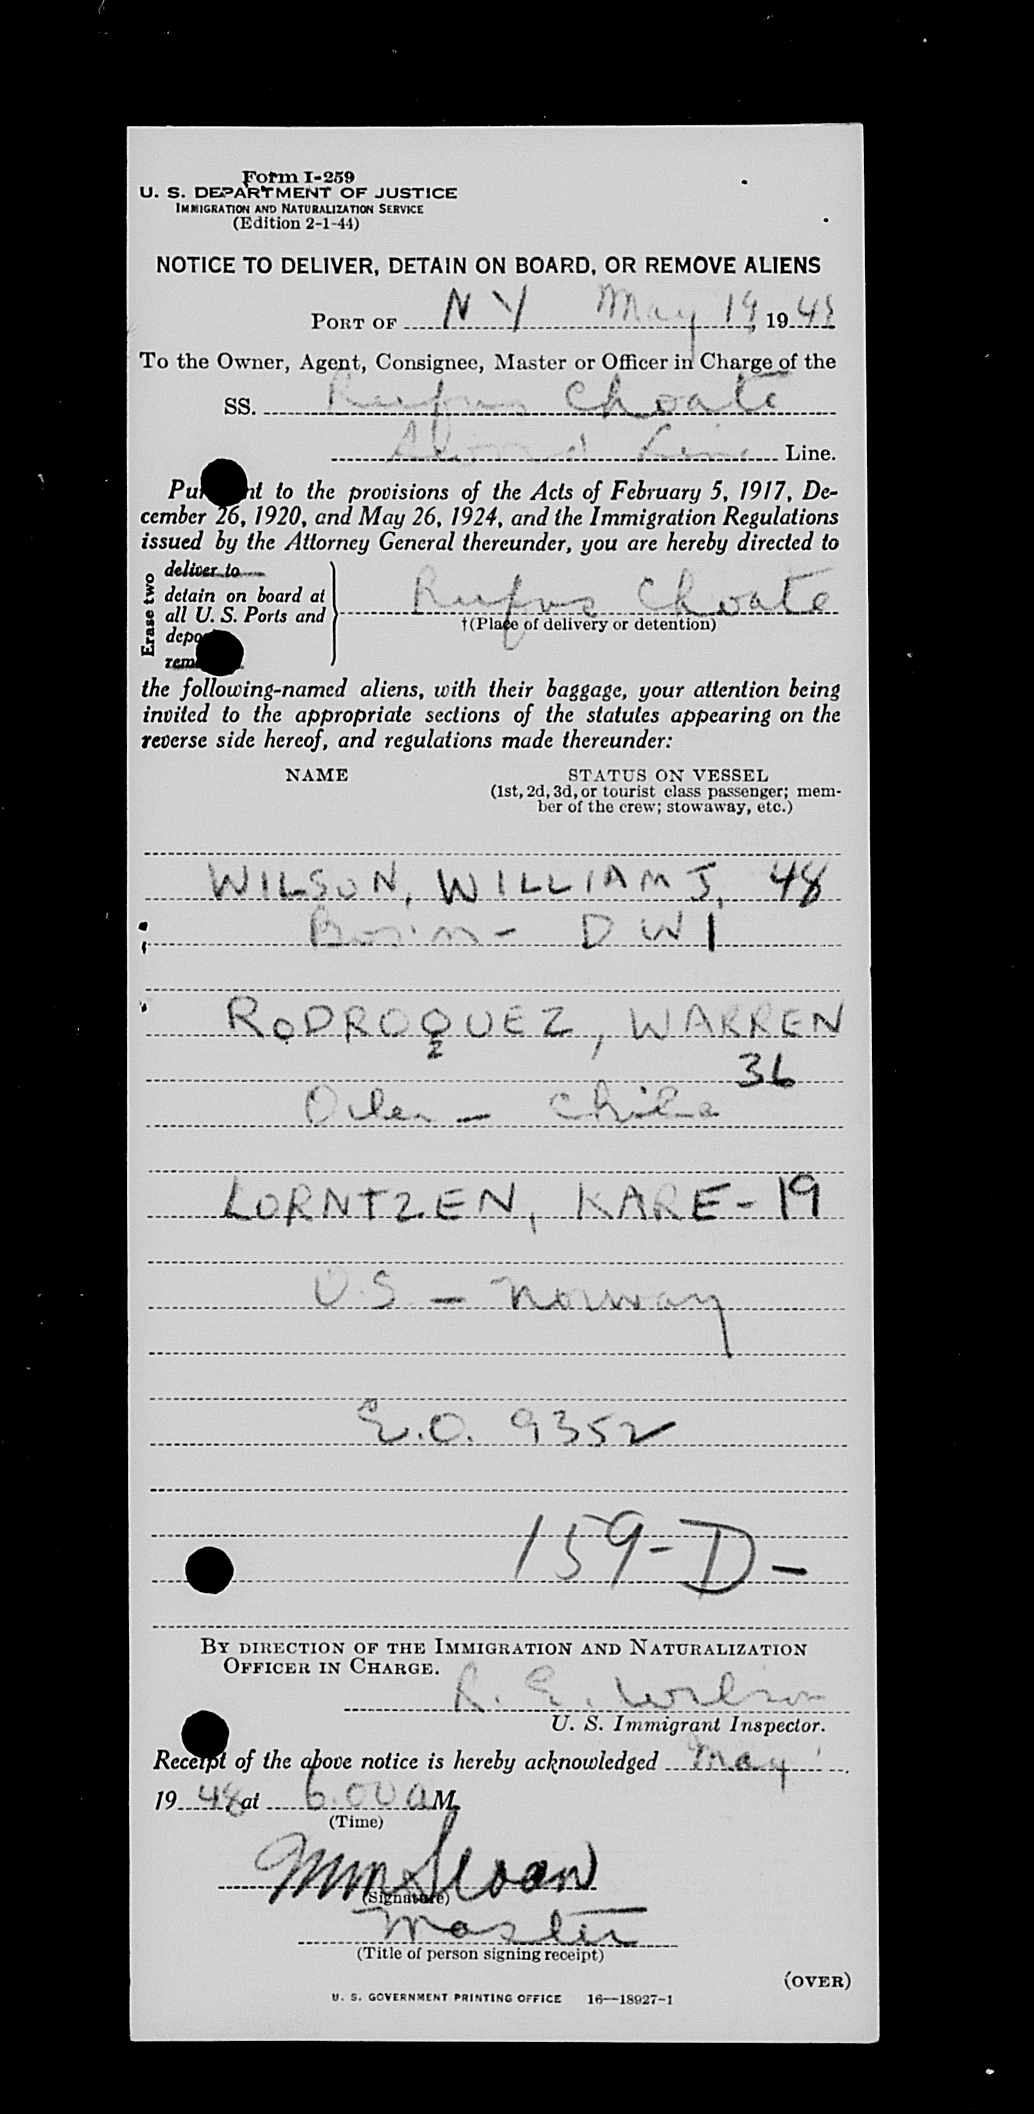 Form I-259
U. S. DEPARTMENT OF JUSTICE
IMMIGRATION AND NATURALIZATION SERVICE
(Edition 2-1-44)
NOTICE TO DELIVER, DETAIN ON BOARD, OR REMOVE ALIENS
PORT OF NY May 19, 1948
To the Owner, Agent, Consignee, Master or Officer in Charge of the
SS. Rufus Choate
Line Line.
Pur nt to the provisions of the Acts of February 5, 1917, De-
cember 26, 1920, and May 26, 1924, and the Immigration Regulations
issued by the Attorney General thereunder, you are hereby directed to
Erase two
deliver to
detain on board at
all U. S. Ports and
depo
rem
Rufus Choate
†(Place of delivery or detention)
the following-named aliens, with their baggage, your attention being
invited to the appropriate sections of the statutes appearing on the
reverse side hereof, and regulations made thereunder:
NAME STATUS ON VESSEL
(1st, 2d, 3d, or tourist class passenger; mem-
ber of the crew; stowaway, etc.)
WILSON, WILLIAM J, 48
Bosin - DWI
RODROQUEZ, WARREN
36
Oiler - Chile
LORNTZEN, KARE - 19
O.S. - Norway
E.O. 9352
159-D-
BY DIRECTION OF THE IMMIGRATION AND NATURALIZATION
OFFICER IN CHARGE.
R. E. Wilson
U. S. Immigrant Inspector.
Receipt of the above notice is hereby acknowledged May
19 48 at 6.00 a M.
(Time)
Wm Sloan
(Signature)
Master
(Title of person signing receipt)
(OVER)
U. S. GOVERNMENT PRINTING OFFICE 16—18927-1